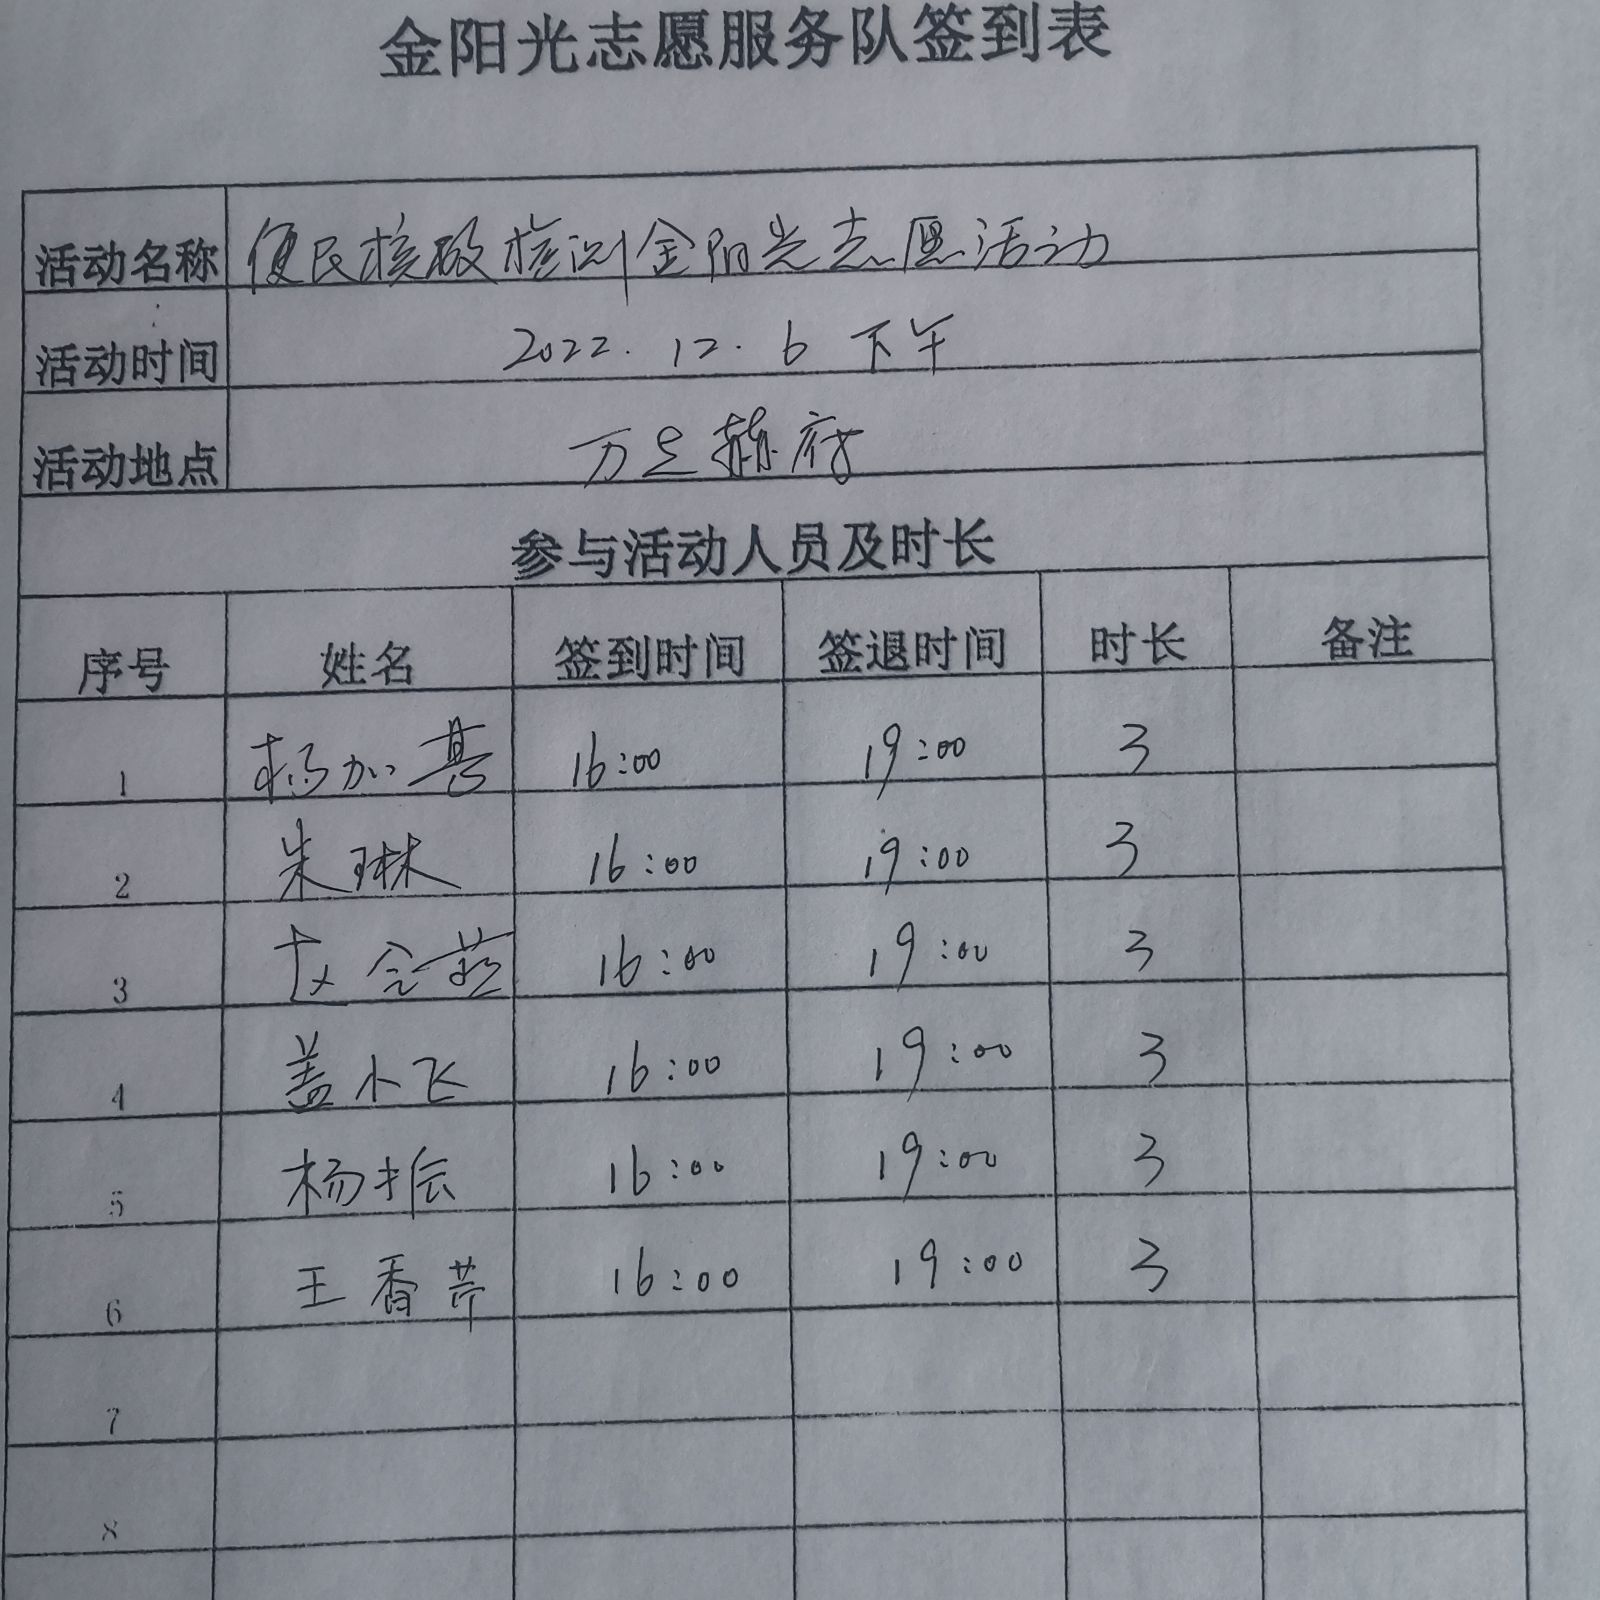 金阳光志愿服务队签到表
活动名称 便民核酸检测金阳光志愿活动
活动时间 2022.12.6 下午
活动地点 万 府
参与活动人员及时长
序号 姓名 签到时间 签退时间 时长 备注
1 杨加 16:00 19:00 3
2 朱琳 16:00 19:00 3
3 赵会燕 16:00 19:00 3
4 盖小飞 16:00 19:00 3
5 杨振 16:00 19:00 3
6 王香芹 16:00 19:00 3
7
8